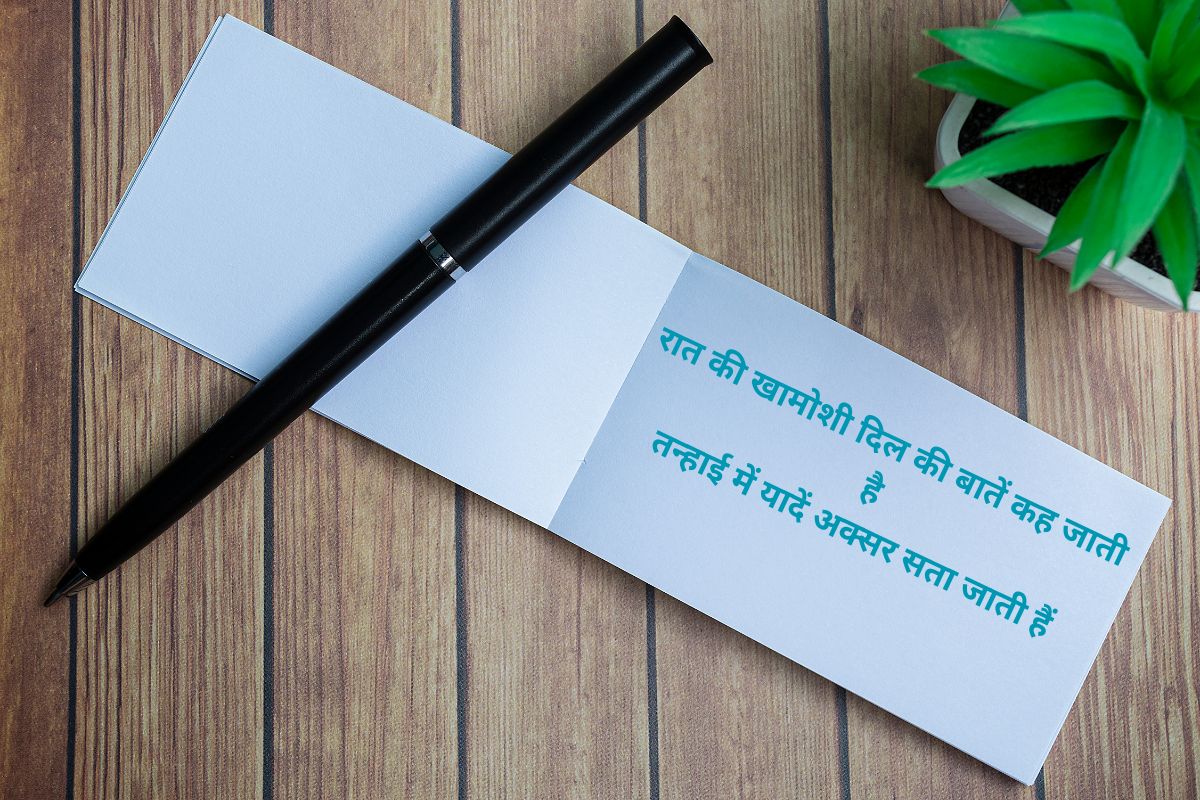 रात की खामोशी दिल की बातें कह जाती
है
तन्हाई में यादें अक्सर सता जाती हैं